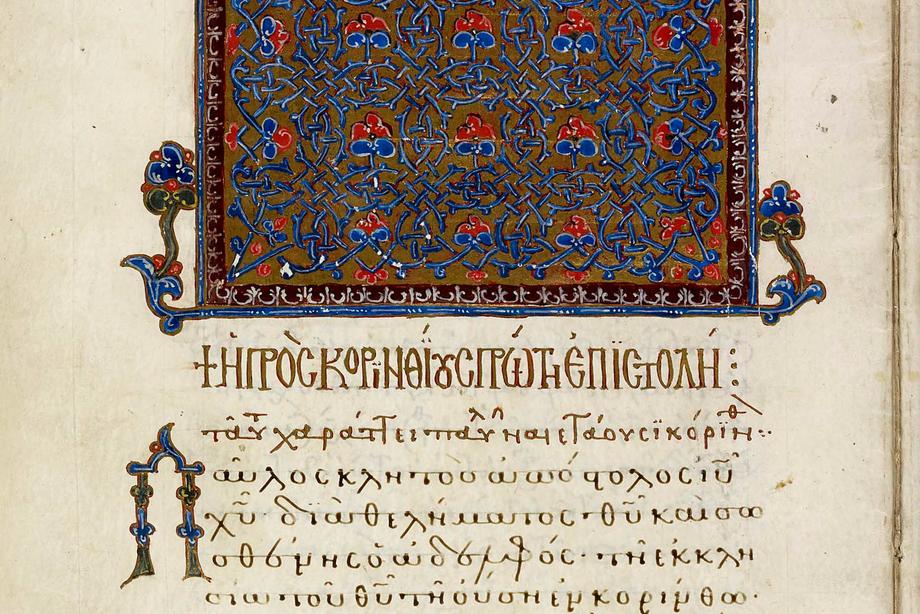 + Ἡ ΠΡῸϹ ΚΟΡΙΝΘΊΟΥϹ ΠΡΏΤΗ ἘΠΙϹΤΟΛΉ :
ταῦτ χαράττει παῦλ ναιετάουσϊ κόρϊνθ :·
Παῦλος κλητὸς ἀπόστολος ιῦ
χῦ· διὰ θελήματος θῦ καὶ σω
σθένης ὁ ἀδελφός· τῆ ἐκκλη
σία τοῦ θῦ τῆ οὔση ἐν κορίνθω·